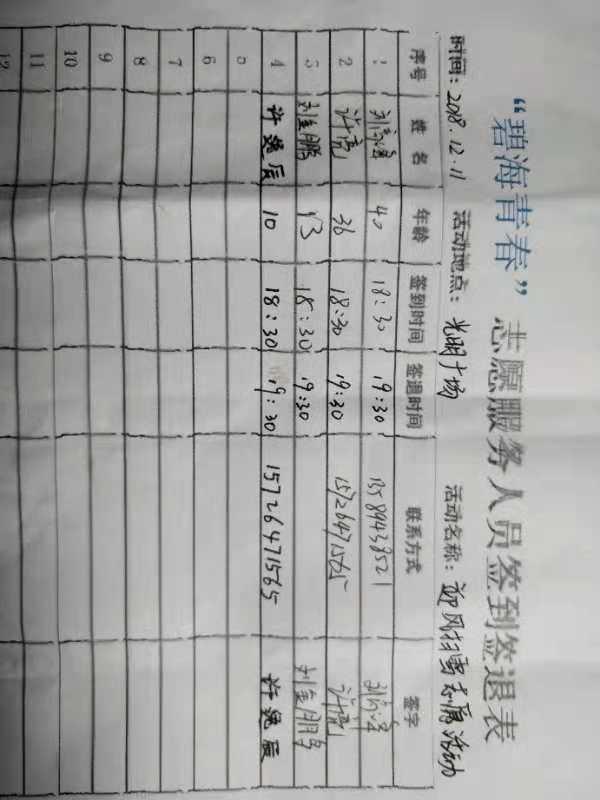 “碧海青春”志愿服务人员签到签退表
时间：2018.12.11 活动地点：光明广场 活动名称：迎风扫雪志愿活动
序号 姓名 年龄 签到时间 签退时间 联系方式 签字
1 40 18:30 19:30
2 许亮 36 18:30 19:30 15726471565 许亮
3 刘金鹏 13 18:30 19:30 刘金鹏
4 许逸辰 10 18:30 19:30 15726471565 许逸辰
5
6
7
8
9
10
11
12